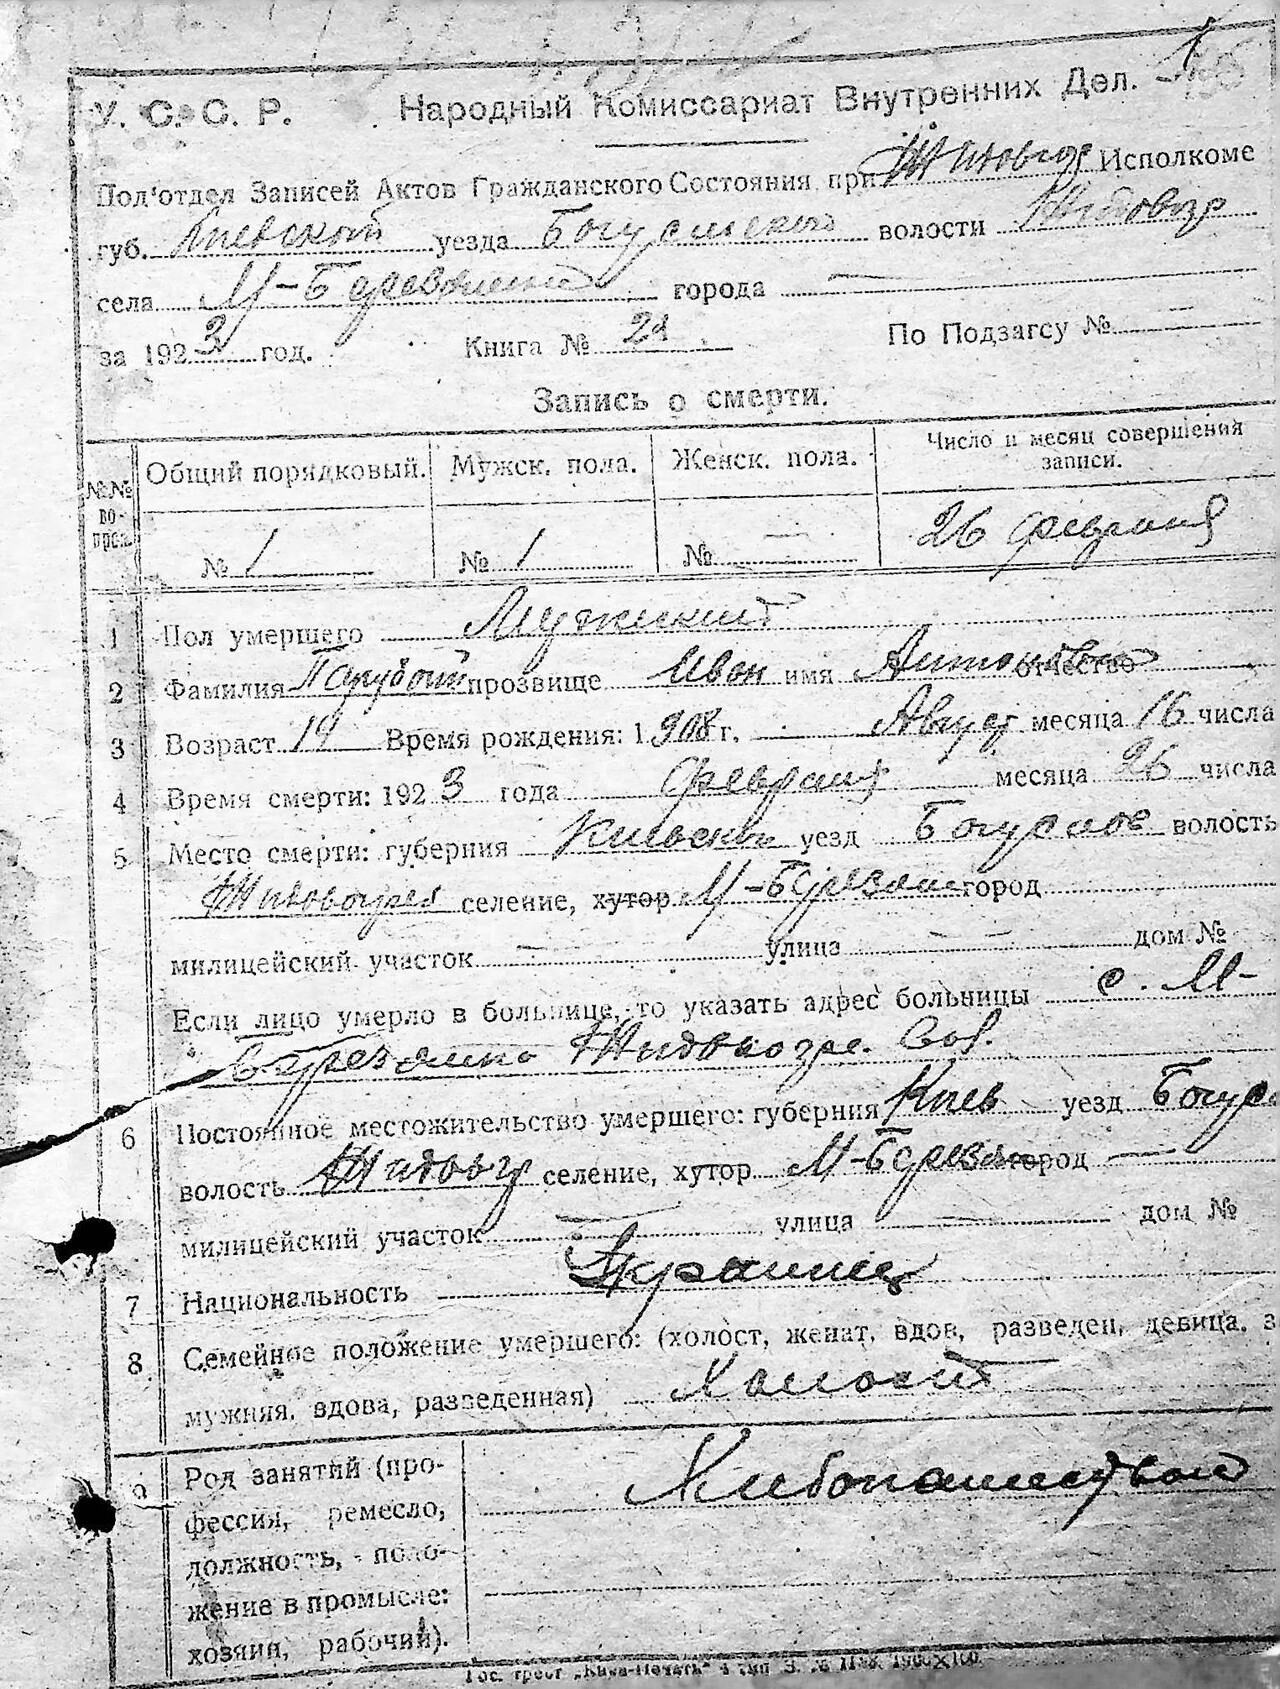 У. С. С. Р. Народный Комиссариат Внутренних Дел. 1
Под'отдел Записей Актов Гражданского Состояния при Исполкоме
губ. Киевской уезда Богуславского волости
села М-Березянки города —
за 1923 год. Книга № По Подзагсу № —
Запись о смерти.
№№ вопроса Общий порядковый. Мужск. пола. Женск. пола. Число и месяц совершения записи.
№ 1 № 1 № — 26 февраля
1 Пол умершего Мужский
2 Фамилия Парубой прозвище Иван имя Антонович отчество
3 Возраст 14 Время рождения: 1908 г. Август месяца 16 числа
4 Время смерти: 1923 года февраля месяца 26 числа
5 Место смерти: губерния Киевской уезд Богуслав волость
селение, хутор М-Березян город
милицейский участок — улица — — дом №
Если лицо умерло в больнице, то указать адрес больницы с. М-
6 Постоянное местожительство умершего: губерния Киев уезд Богус
волость Житовг селение, хутор М-Березян город —
милицейский участок — улица — дом №
7 Национальность Украинец
8 Семейное положение умершего: (холост, женат, вдов, разведен, девица, за
мужняя, вдова, разведенная) Холост
9 Род занятий (про-
фессия, ремесло,
должность, поло-
жение в промысле:
хозяин, рабочий).
Хлебопашество